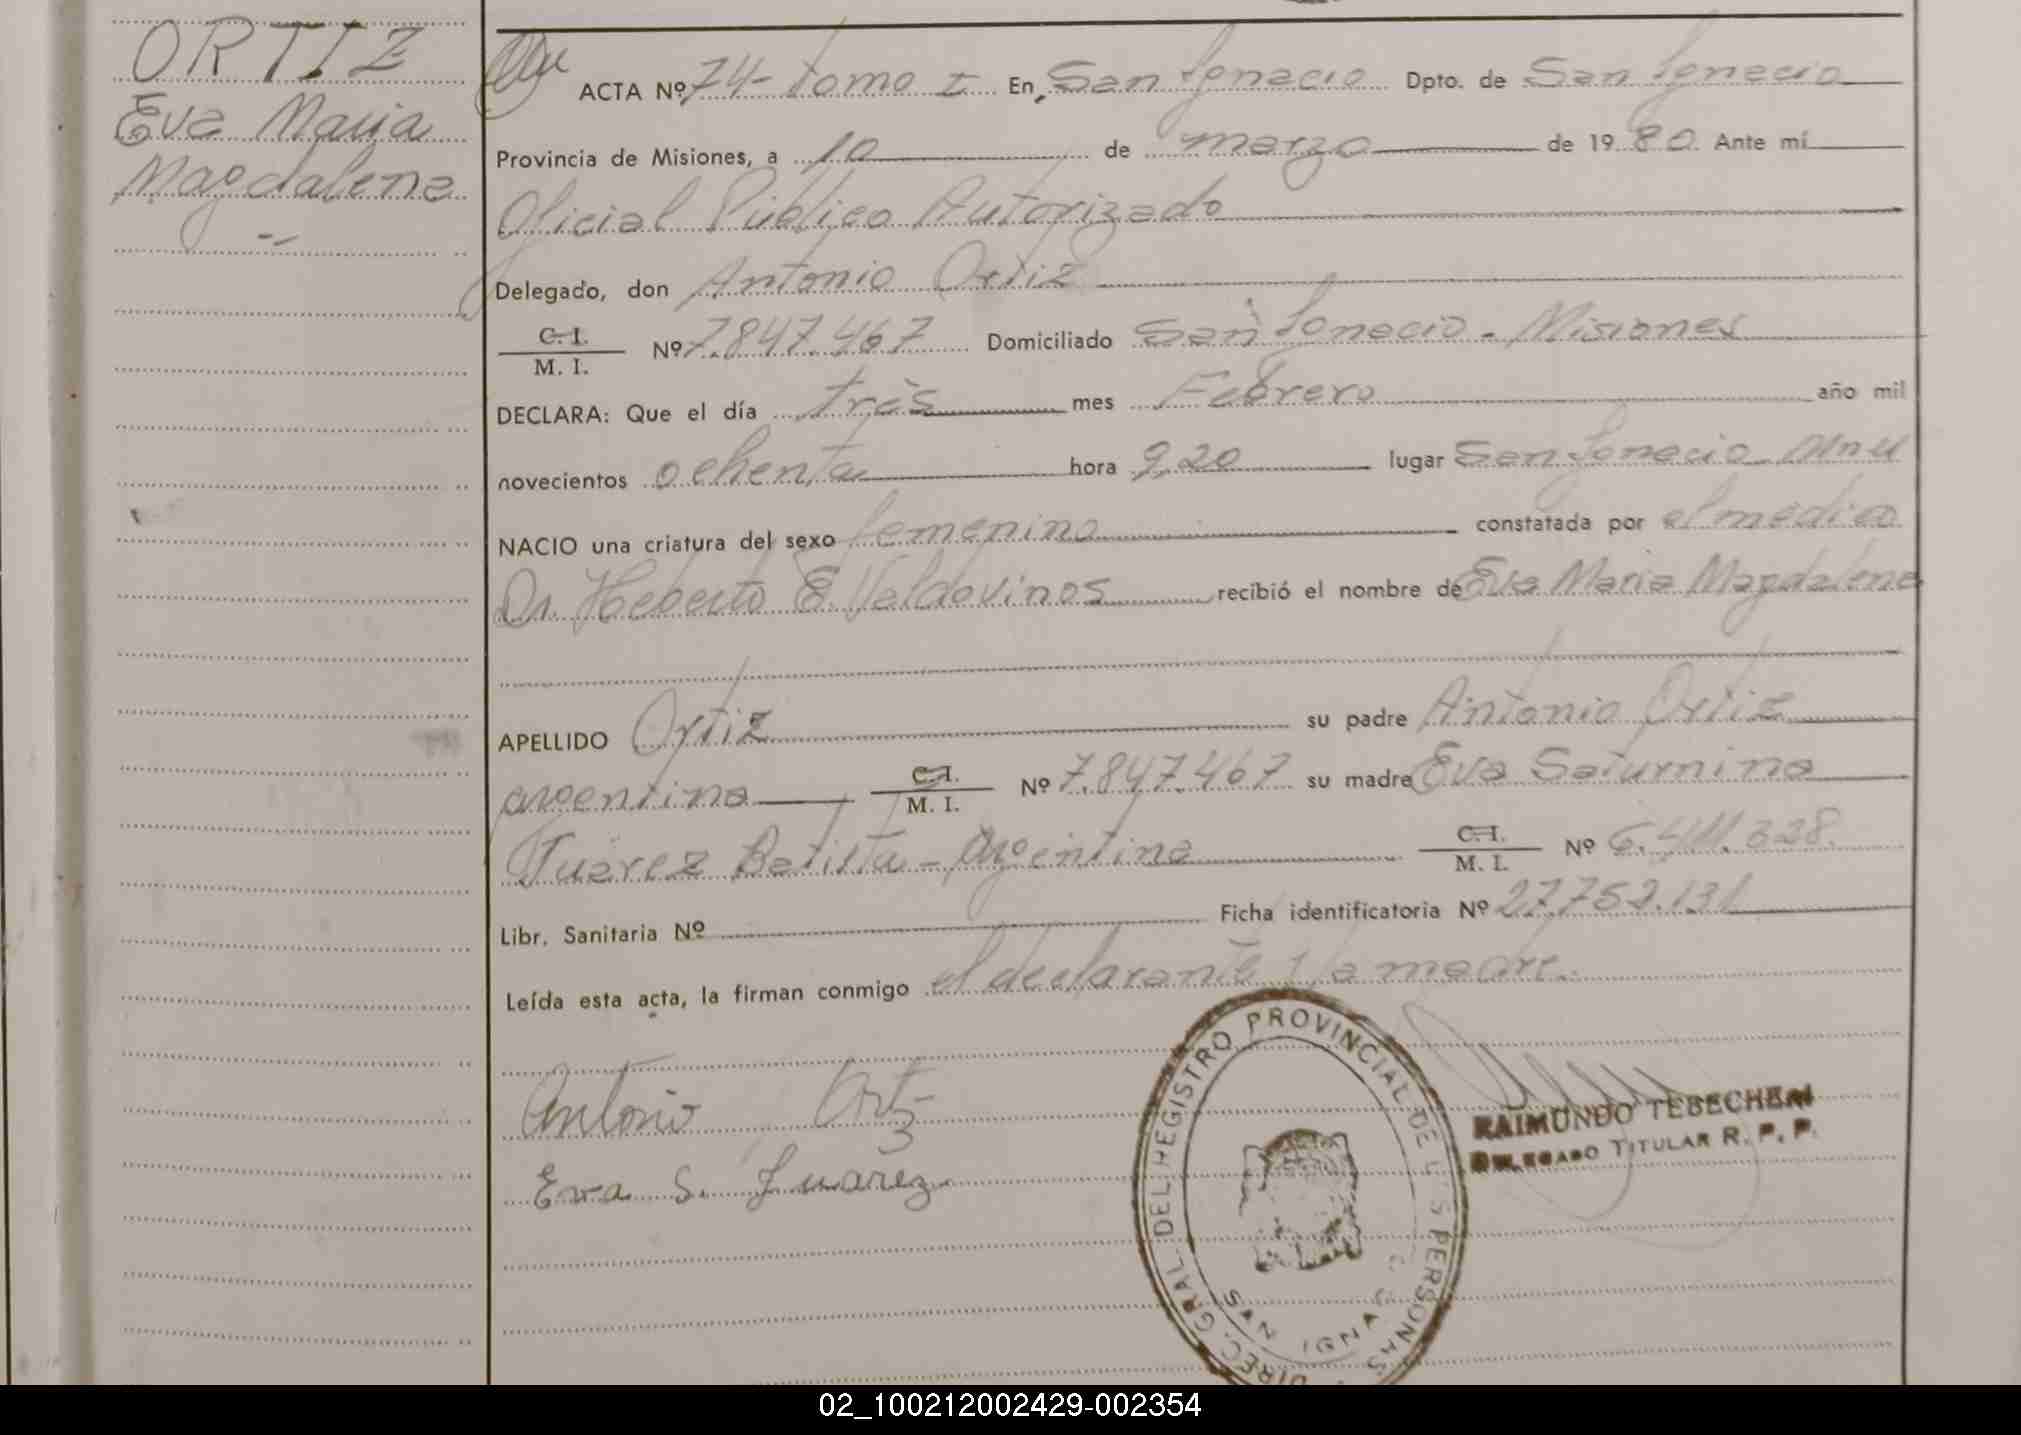 ORTIZ
Eva Maria
Magdalena
ACTA Nº 74 - Tomo I En, San Ignacio Dpto. de San Ignacio
Provincia de Misiones, a 10 de marzo de 1980. Ante mí
Oficial Público Autorizado
Delegado, don Antonio Ortiz
C. I.
M. I. Nº 7.847.467 Domiciliado San Ignacio - Misiones
DECLARA: Que el día tres mes Febrero año mil
novecientos ochenta hora 9,20 lugar San Ignacio
NACIO una criatura del sexo femenino constatada por el medico
Dr. Heberto E. Valdovinos recibió el nombre de Eva Maria Magdalena
APELLIDO Ortiz su padre Antonio Ortiz
argentino C. I.
M. I. Nº 7.847.467 su madre Eva Saturnina
Juárez Batista - Argentina C. I.
M. I. Nº 6.411.328.
Libr. Sanitaria Nº Ficha identificatoria Nº 27.752.131
Leída esta acta, la firman conmigo el declarante y la madre.
Antonio Ortiz
Eva S. Juarez
DIREC. GRAL. DEL REGISTRO PROVINCIAL DE LAS PERSONAS
SAN IGNACIO
RAIMUNDO TEBECHERI
DELEGADO TITULAR R. P. P.
02_100212002429-002354